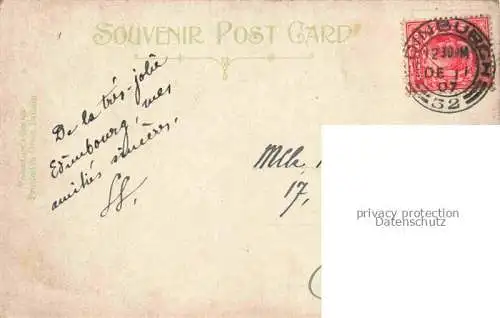 SOUVENIR POST CARD
EDINBURGH
12 30 PM
DE 11
07
32
De la très-jolie
Edimbourg, mes
amitiés sincères.
Mlle
17,
privacy protection
Datenschutz